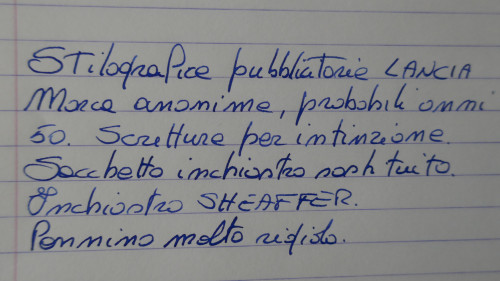 Stilografica pubblicitaria LANCIA
Marca anonima, probabili anni
50. Scrittura per intinzione.
Sacchetto inchiostro sostituito.
Inchiostro SHEAFFER.
Pennino molto rigido.